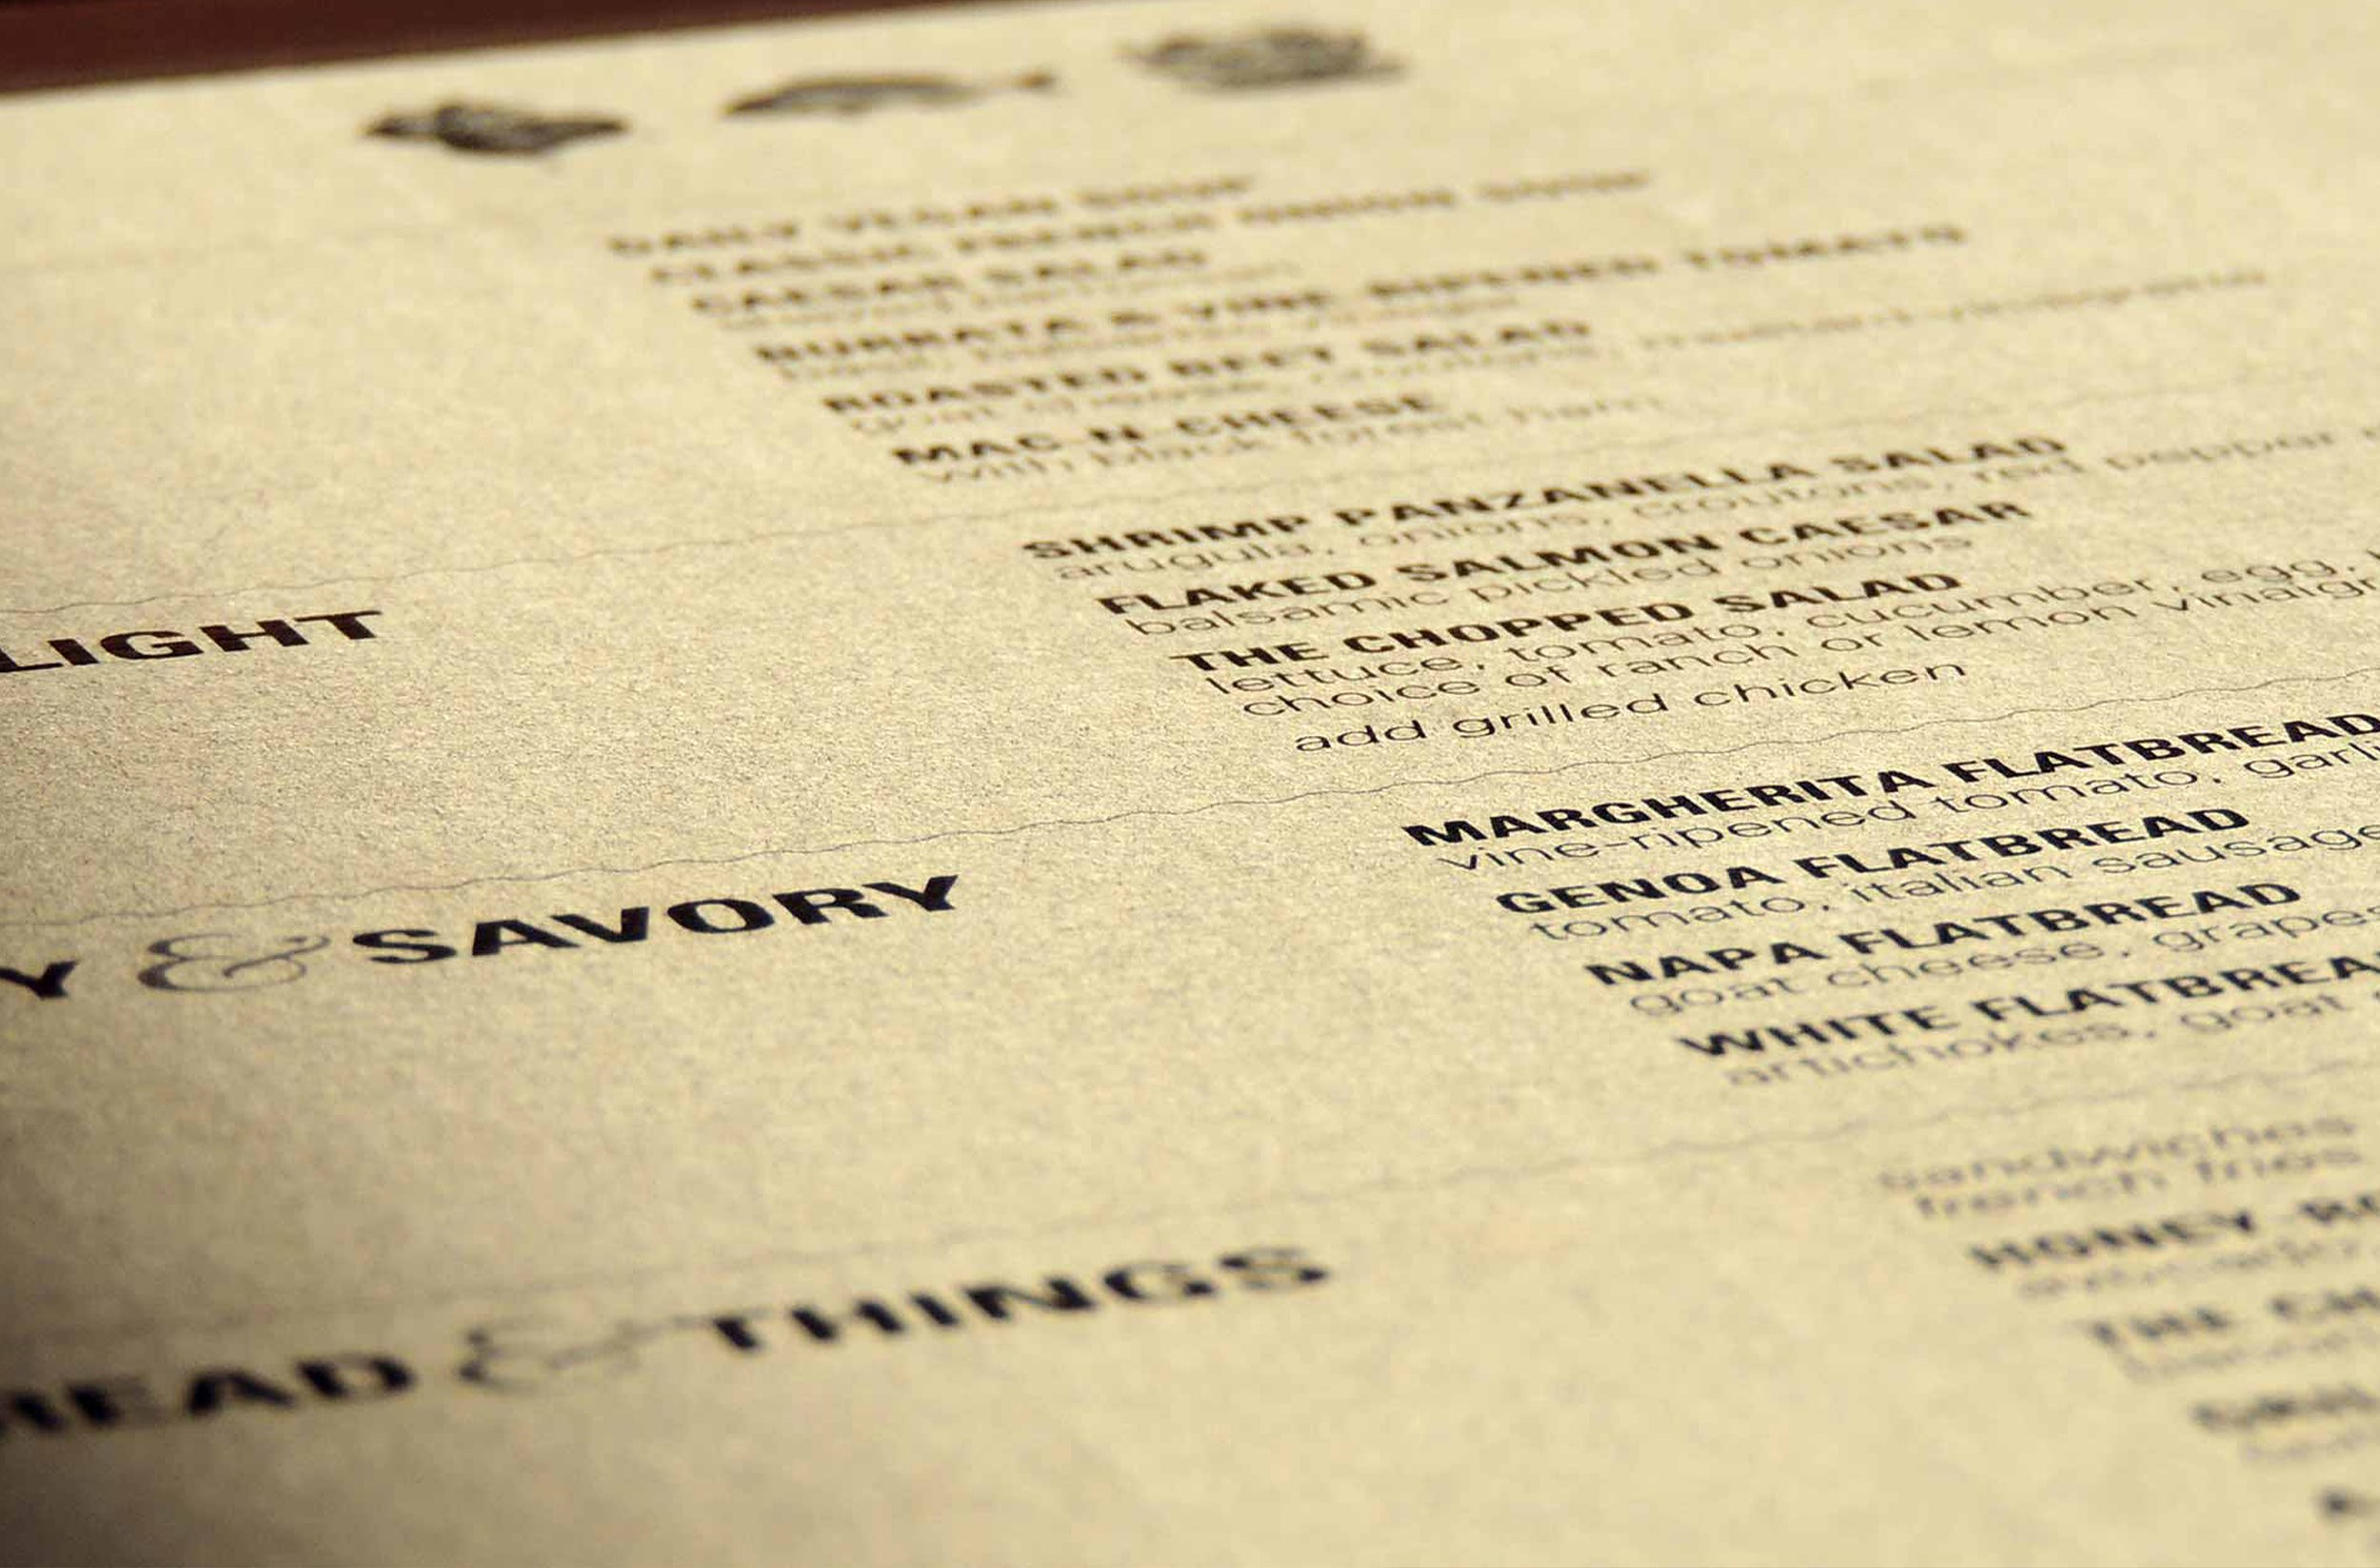 DAILY VEGAN SOUP
CLASSIC FRENCH ONION SOUP
CAESAR SALAD
BURRATA & VINE-RIPENED TOMATO
ROASTED BEET SALAD
goat cheese, croutons, mustard vinaigrette
MAC-N-CHEESE
with black forest ham
LIGHT
SHRIMP PANZANELLA SALAD
arugula, onions, croutons, red pepper
FLAKED SALMON CAESAR
balsamic pickled onions
THE CHOPPED SALAD
lettuce, tomato, cucumber, egg,
choice of ranch or lemon vinaigr
add grilled chicken
Y & SAVORY
MARGHERITA FLATBREAD
vine-ripened tomato, garl
GENOA FLATBREAD
tomato, italian sausage
NAPA FLATBREAD
goat cheese, grapes
WHITE FLATBREA
artichokes, goat
EAD & THINGS
sandwiches
french fries
HONEY-RO
THE CH